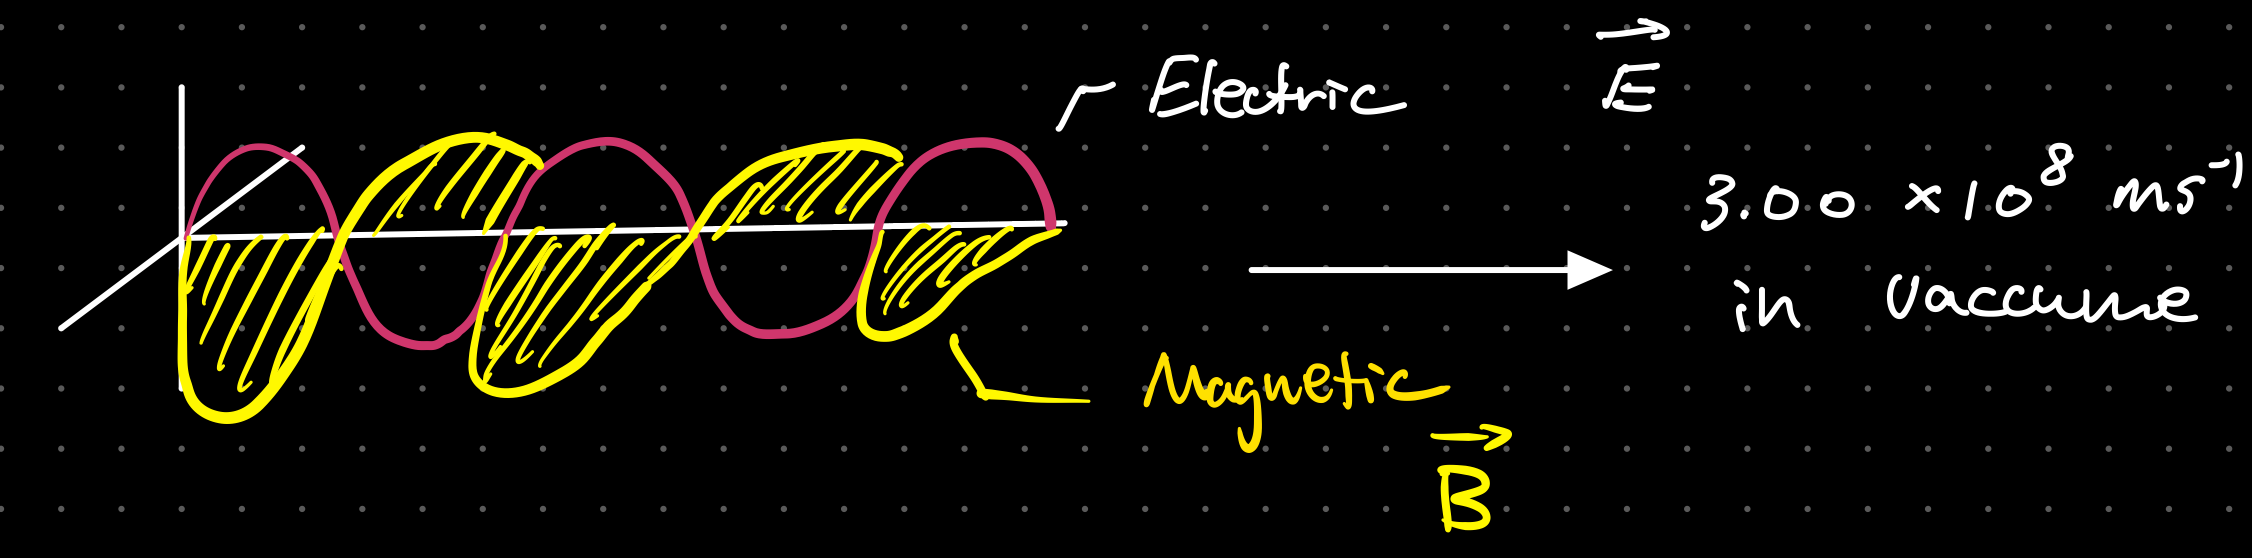 Electric
E⃗
3.00 ×10⁸ ms⁻¹
in vaccume
Magnetic
B⃗